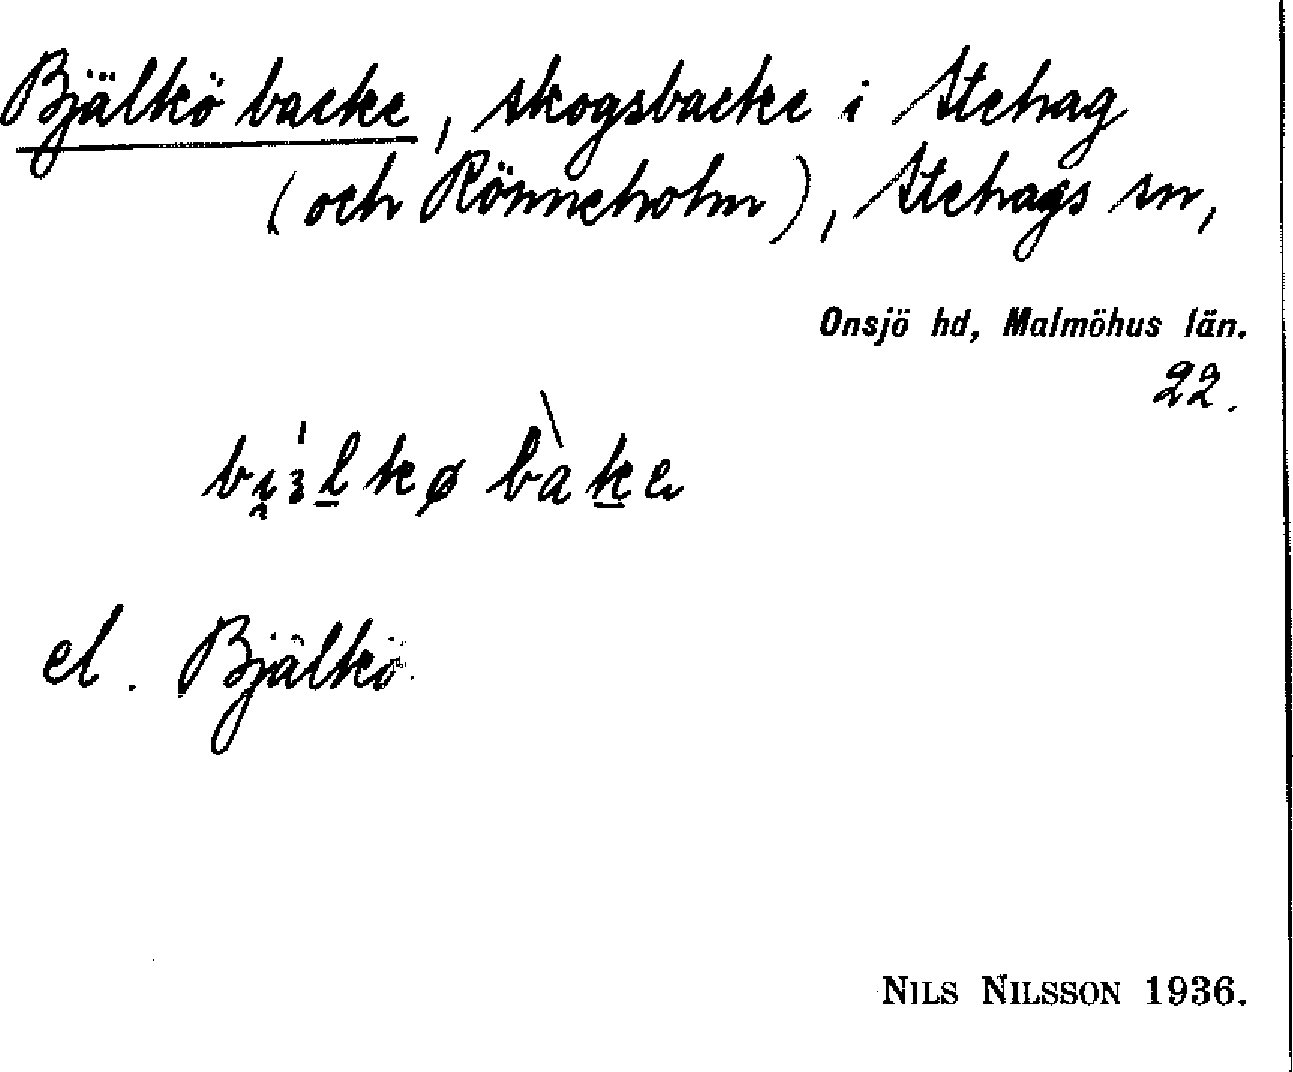 Bjälkö backe, skogsbacke i Stehag
(och Rönneholm), Stehags sn,
Onsjö hd, Malmöhus län.
22.
el. Bjälkö
NILS NILSSON 1936.